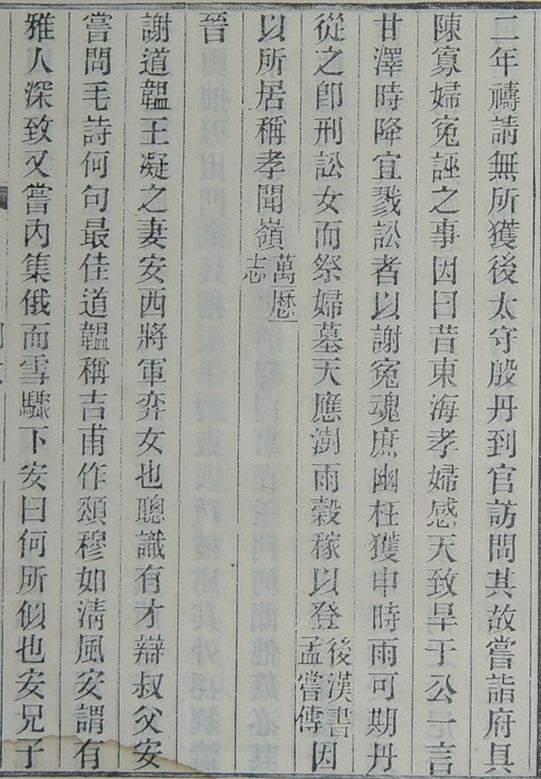 二年禱請無所獲後太守殷丹到官訪問其故嘗詣府具
陳寡婦冤誣之事因曰昔東海孝婦感天致旱于公一言
甘澤時降宜戮訟者以謝冤魂庶幽枉獲申時雨可期丹
從之卽刑訟女而祭婦墓天應澍雨穀稼以登後漢書孟嘗傳因
以所居稱孝聞嶺萬曆志
晉
謝道韞王凝之妻安西將軍弈女也聰識有才辯叔父安
嘗問毛詩何句最佳道韞稱吉甫作頌穆如淸風安謂有
雅人深致又嘗內集俄而雪驟下安曰何所似也安兄子